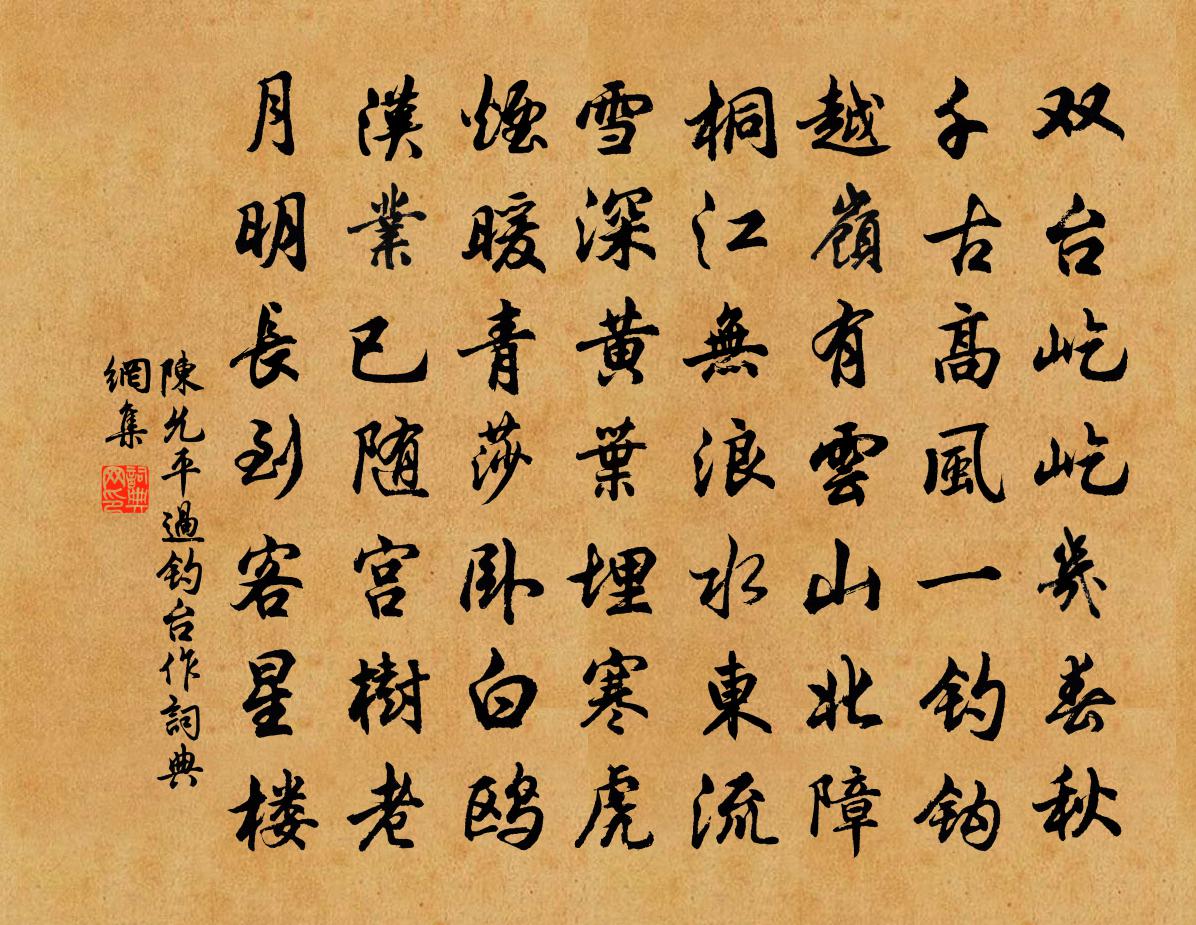 双台屹屹几春秋
千古高風一钓钩
越嶺有雲山北障
桐江無浪水東流
雪深黄葉埋寒虎
煙暖青莎卧白鸥
漢業已随宫樹老
月明長到客星楼
陳允平過钓台作詞典
網集
詞典
网印